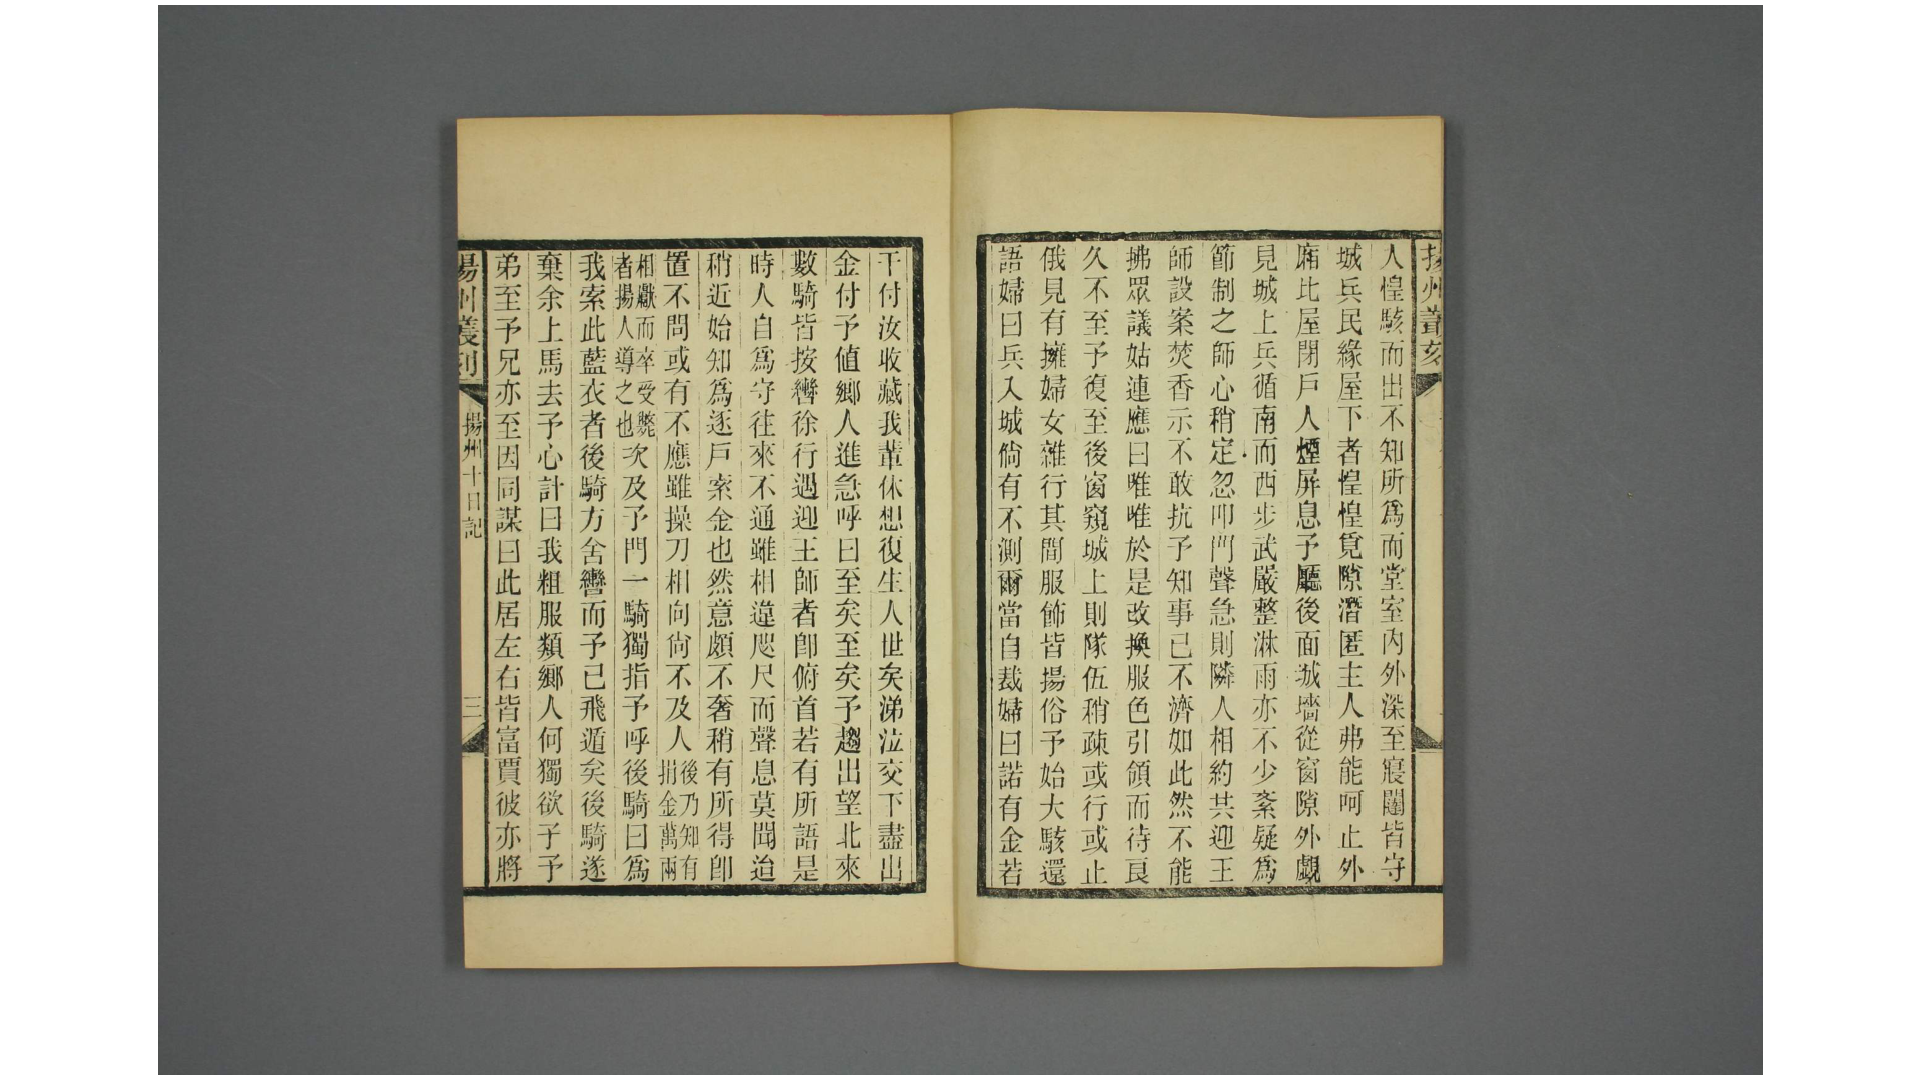 揚州叢刻
人惶駭而出不知所爲而堂室內外深至寢闥皆守
城兵民緣屋下者惶惶覓隙潛匿主人弗能呵止外
廂比屋閉戶人煙屏息予廳後面城墻從窗隙外覷
見城上兵循南而西步武嚴整淋雨亦不少紊疑爲
節制之師心稍定忽叩門聲急則隣人相約共迎王
師設案焚香示不敢抗予知事已不濟如此然不能
拂眾議姑連應曰唯唯於是改換服色引領而待良
久不至予復至後窗窺城上則隊伍稍疎或行或止
俄見有擁婦女雜行其間服飾皆揚俗予始大駭還
語婦曰兵入城倘有不測爾當自裁婦曰諾有金若
干付汝收藏我輩休想復生人世矣涕泣交下盡出
金付予值鄉人進急呼曰至矣至矣予趨出望北來
數騎皆按轡徐行遇迎王師者卽俯首若有所語是
時人自爲守往來不通雖相違咫尺而聲息莫聞迨
稍近始知爲逐戶索金也然意頗不奢稍有所得卽
置不問或有不應雖操刀相向尙不及人後乃知有捐金萬兩
相獻而卒受斃者揚人導之也次及予門一騎獨指予呼後騎曰爲
我索此藍衣者後騎方舍轡而予已飛遁矣後騎遂
棄余上馬去予心計曰我粗服類鄉人何獨欲予予
弟至予兄亦至因同謀曰此居左右皆富賈彼亦將
揚州叢刻
揚州十日記
三